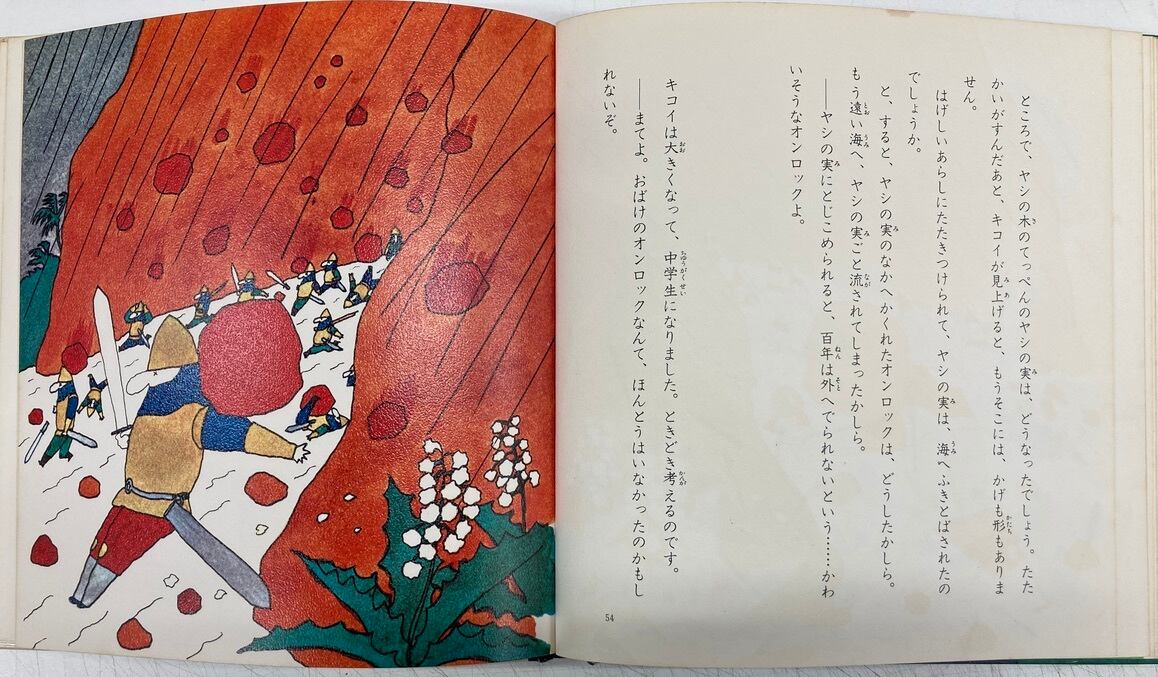 ところで、ヤシの木のてっぺんのヤシの実は、どうなったでしょう。たた
かいがすんだあと、キコイが見上げると、もうそこには、かげも形もありま
せん。
はげしいあらしにたたきつけられて、ヤシの実は、海へふきとばされたの
でしょうか。
と、すると、ヤシの実のなかへかくれたオンロックは、どうしたかしら。
もう遠い海へ、ヤシの実ごと流されてしまったかしら。
――ヤシの実にとじこめられると、百年は外へでられないという……かわ
いそうなオンロックよ。
キコイは大きくなって、中学生になりました。ときどき考えるのです。
――まてよ。おばけのオンロックなんて、ほんとうはいなかったのかもし
れないぞ。
54